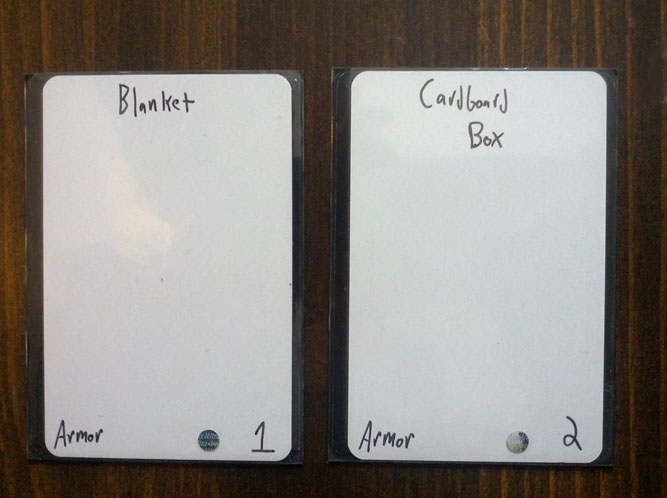 Blanket
Armor 1
Cardboard
Box
Armor 2